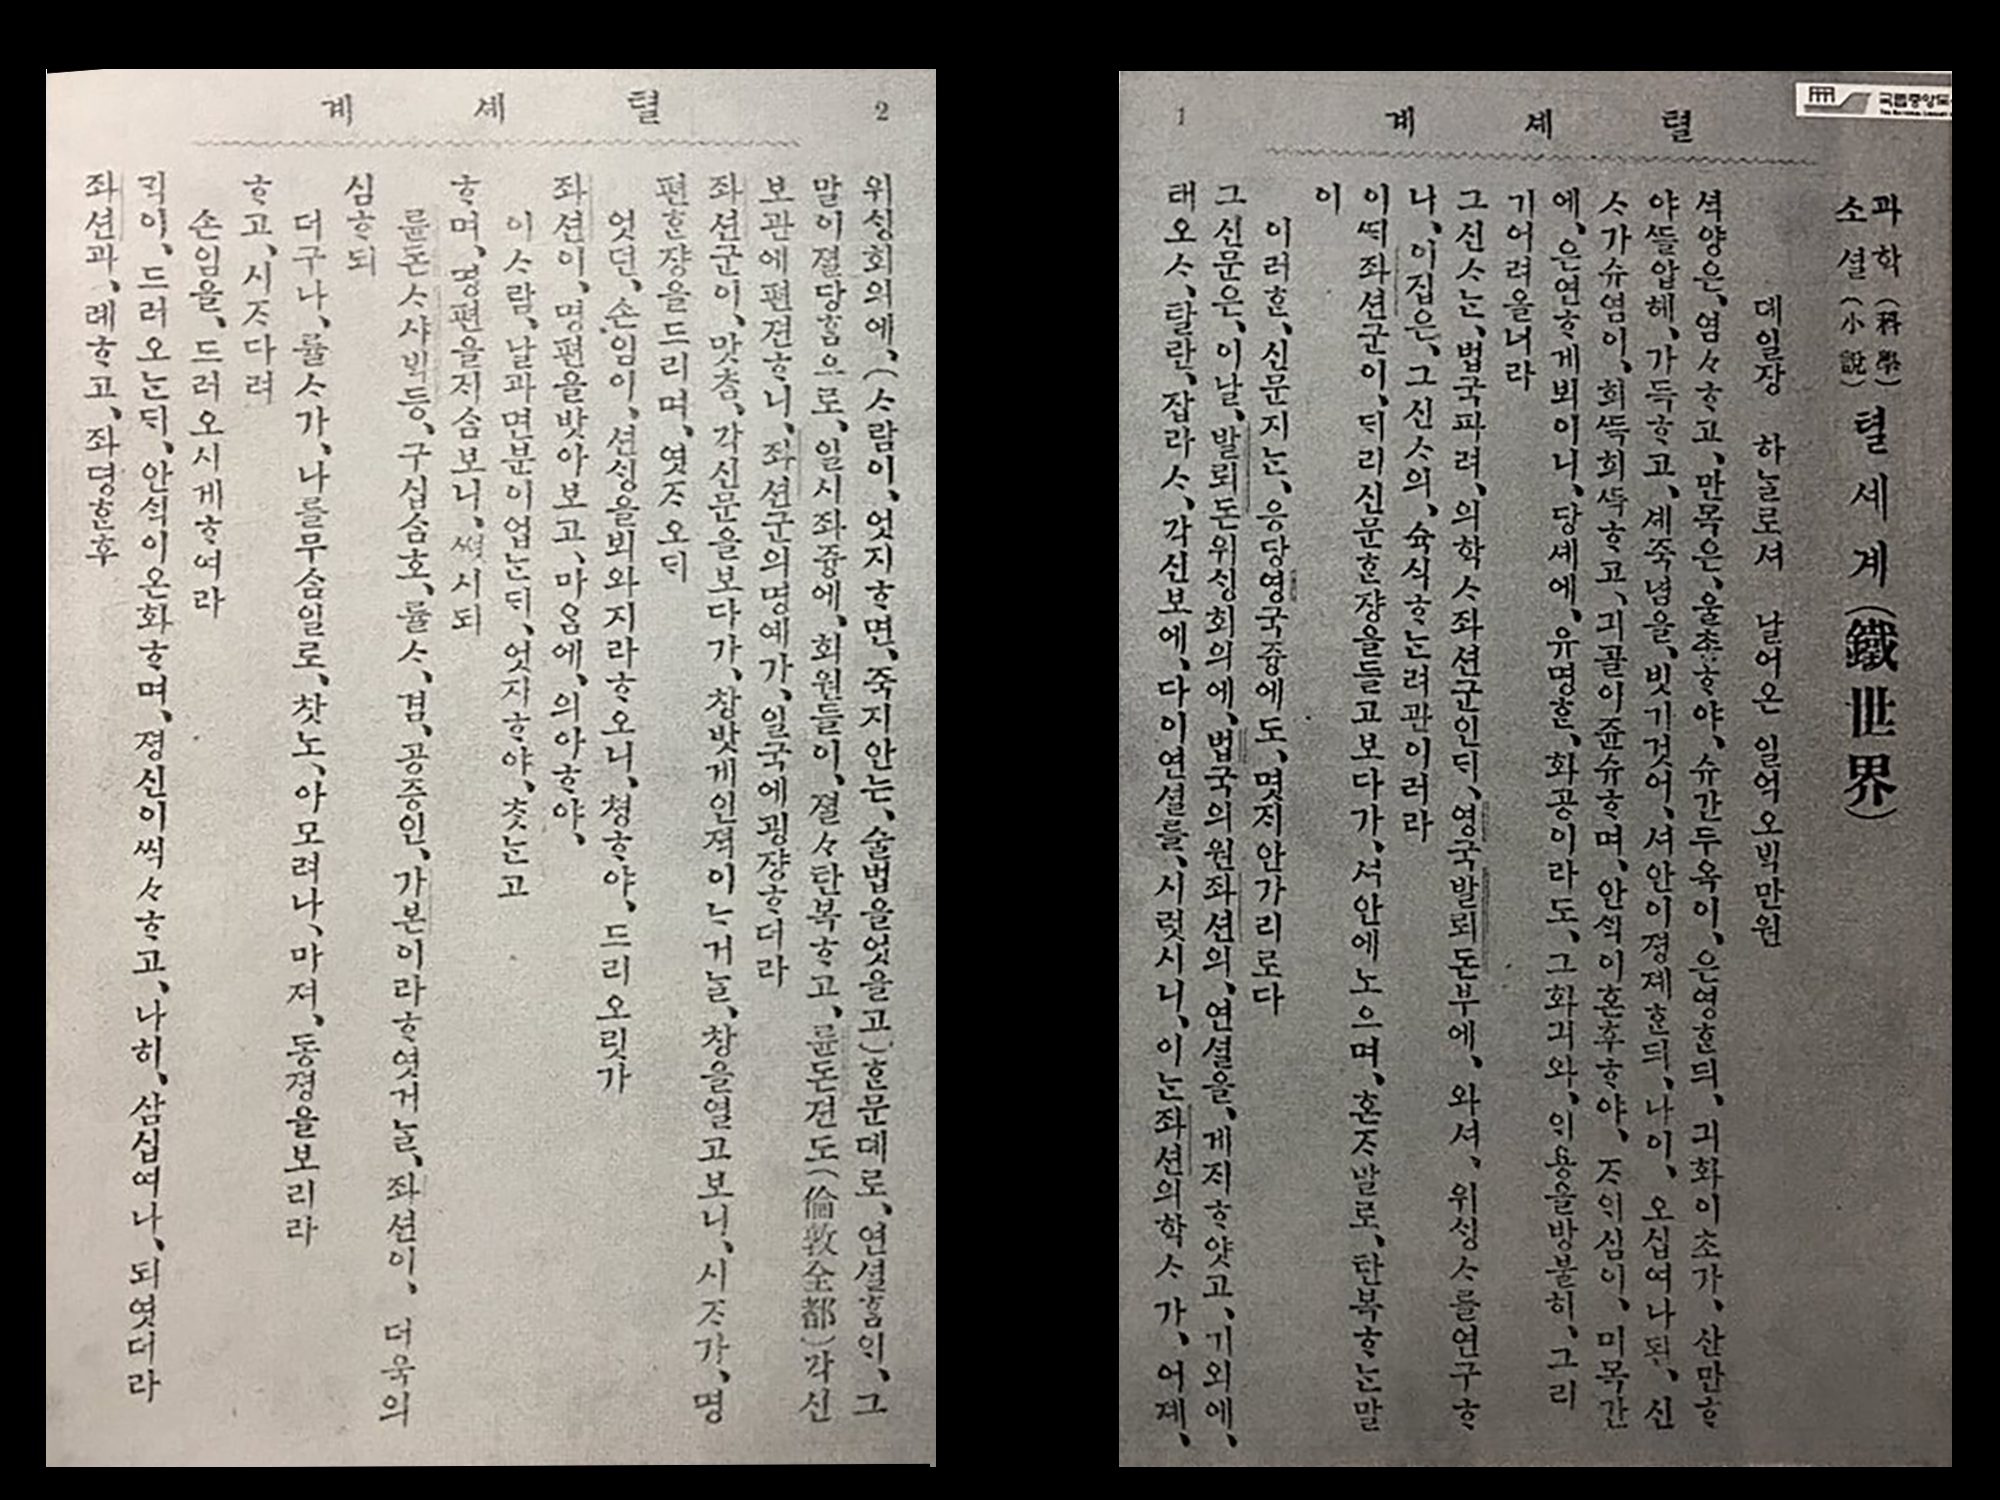 국립중앙도
텰 세 계
1
과학(科學)
소셜(小說)
텰세계(鐵世界)
뎨일장 하ᄂᆞᆯ로셔 날어온 일억오ᄇᆡᆨ만원
셕양은、염々ᄒᆞ고、만목은、울초ᄒᆞ야、슈간두옥이、은영ᄒᆞᆫᄃᆡ、긔화이초가、산만ᄒᆞ
야ᄯᅳᆯ압헤、가득ᄒᆞ고、셰쥭념을、빗기것어、셔안이졍졔ᄒᆞᆫᄃᆡ、나이、오십여나된、신
ᄉᆞ가슈염이、희ᄯᅳᆨ희ᄯᅳᆨᄒᆞ고、긔골이쥰슈ᄒᆞ며、안ᄉᆡᆨ이혼후ᄒᆞ야、ᄌᆞᄋᆡ심이、미목간
에、은연ᄒᆞ게뵈이니、당셰에、유명ᄒᆞᆫ、화공이라도、그화긔와、의용을방불히、그리
기어려올너라
그신ᄉᆞᄂᆞᆫ、법국파려、의학ᄉᆞ좌션군인ᄃᆡ、영국발뢰돈부에、와셔、위ᄉᆡᆼᄉᆞ를연구ᄒᆞ
나、이집은、그신ᄉᆞ의、슉식ᄒᆞᄂᆞᆫ려관이러라
이ᄯᆡ좌션군이、ᄃᆡ리신문ᄒᆞᆫ쟝을들고보다가、셔안에노으며、혼ᄌᆞ말로、탄복ᄒᆞᄂᆞᆫ말
이
이러ᄒᆞᆫ、신문지ᄂᆞᆫ、응당영국즁에도、몃지안가리로다
그신문은、이날、발뢰돈위ᄉᆡᆼ회의에、법국의원좌션의、연셜을、게ᄌᆡᄒᆞ얏고、기외에、
태오ᄉᆞ、탈란、잡라ᄉᆞ、각신보에、다이연셜를、시럿시니、이ᄂᆞᆫ좌션의학ᄉᆞ가、어졔、
텰 세 계
2
위ᄉᆡᆼ회의에、(ᄉᆞ람이、엇지ᄒᆞ면、죽지안는、술법을엇을고)ᄒᆞᆫ문뎨로、연셜ᄒᆞᆷᄋᆡ、그
말이졀당ᄒᆞᆷ으로、일시좌즁에、회원들이、졀々탄복ᄒᆞ고、륜돈젼도(倫敦全都)각신
보관에편젼ᄒᆞ니、좌션군의명예가、일국에굉쟝ᄒᆞ더라
좌션군이、맛ᄎᆞᆷ、각신문을보다가、창밧게인젹이ᄂᆞ거ᄂᆞᆯ、창을열고보니、시ᄌᆞ가、명
편ᄒᆞᆫ쟝을드리며、엿ᄌᆞ오ᄃᆡ
엇던、손임이、션ᄉᆡᆼ을뵈와지라ᄒᆞ오니、쳥ᄒᆞ야、드리오릿가
좌션이、명편을밧아보고、마ᄋᆞᆷ에、의아ᄒᆞ야、
이ᄉᆞ람、날과면분이업ᄂᆞᆫᄃᆡ、엇지ᄒᆞ야、ᄎᆞᆺᄂᆞᆫ고
ᄒᆞ며、명편을ᄌᆡ삼보니、썻시되
륜돈ᄉᆞ샤ᄇᆡᆨ등、구십삼호、률ᄉᆞ、겸、공증인、가본이라ᄒᆞ엿거ᄂᆞᆯ、좌션이、더욱의
심ᄒᆞ되
더구나、률ᄉᆞ가、나를무삼일로、찻노、아모려나、마져、동졍을보리라
ᄒᆞ고、시ᄌᆞ다려
손임을、드러오시게ᄒᆞ여라
ᄀᆡᆨ이、드러오ᄂᆞᆫᄃᆡ、안ᄉᆡᆨ이온화ᄒᆞ며、졍신이씩々ᄒᆞ고、나히、삼십여나、되엿더라
좌션과、례ᄒᆞ고、좌뎡ᄒᆞᆫ후